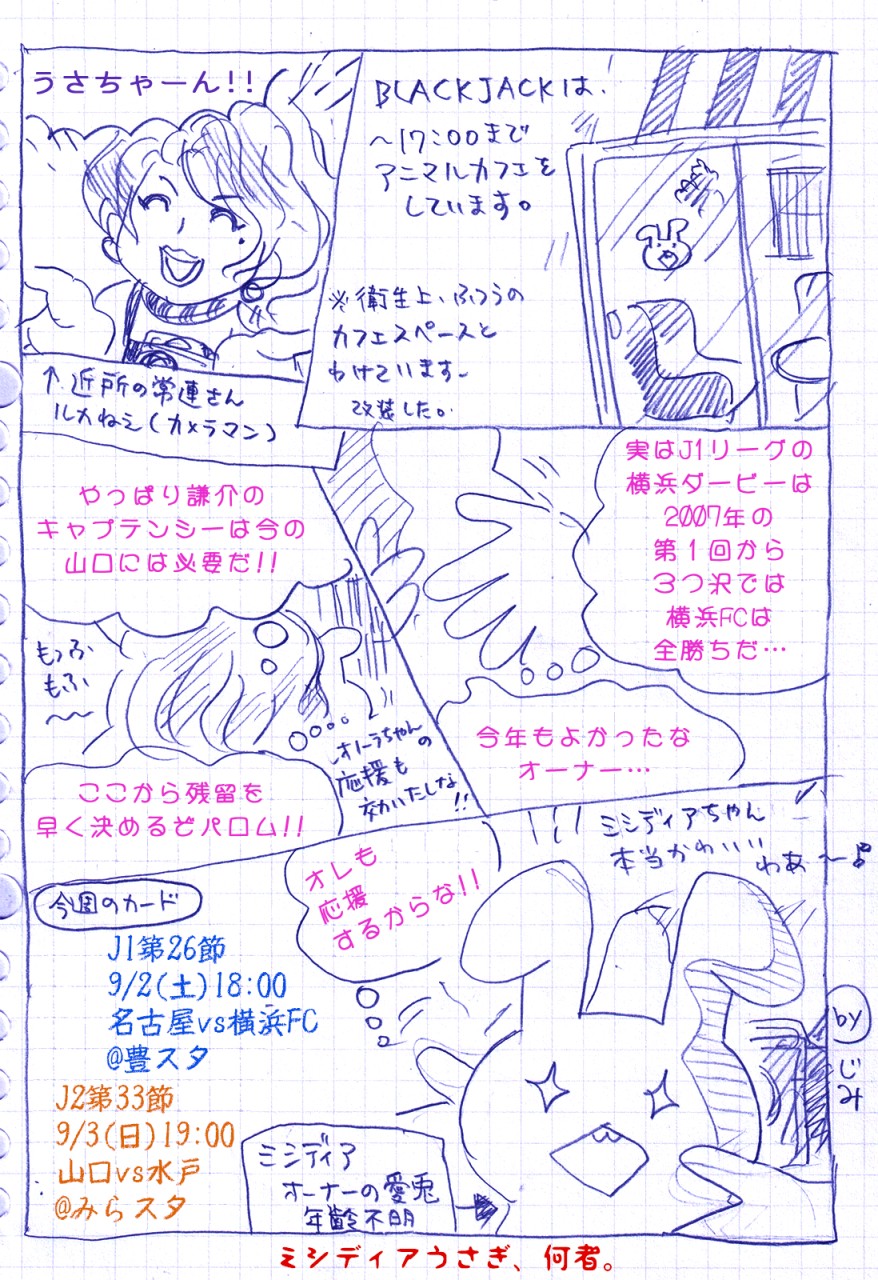 うさちゃーん!!
BLACKJACKは、
～17:00まで
アニマルカフェを
しています。
※衛生上、ふつうの
カフェスペースと
わけています－
改装した。
↑近所の常連さん
ルカねえ(カメラマン)
実はJ1リーグの
横浜ダービーは
2007年の
第1回から
3つ沢では
横浜FCは
全勝ちだ…
今年もよかったな
オーナー…
やっぱり謙介の
キャプテンシーは今の
山口には必要だ!!
もっふ
もふ
～
ここから残留を
早く決めるぞパロム!!
オトーラちゃん
の
応援も
効いたしな
!!
ミシディアちゃん
本当かわいい
わあ～♪
オレも
応援
するからな!!
今週のカード
J1第26節
9/2(土)18:00
名古屋vs横浜FC
@豊スタ
J2第33節
9/3(日)19:00
山口vs水戸
@みらスタ
ミシディア
オーナーの愛兎
年齢不明
by
じみ
ミシディアうさぎ、何者。